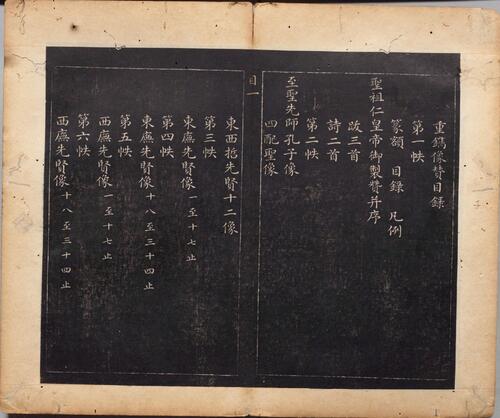 重鐫像贊目錄
第一帙
篆額 目錄 凡例
聖祖仁皇帝御製贊并序
跋三首
詩二首
第二帙
至聖先師孔子像
四配聖像
目一
東西哲先賢十二像
第三帙
東廡先賢像 一至十七止
第四帙
東廡先賢像 十八至三十四止
第五帙
西廡先賢像 一至十七止
第六帙
西廡先賢像 十八至三十四止